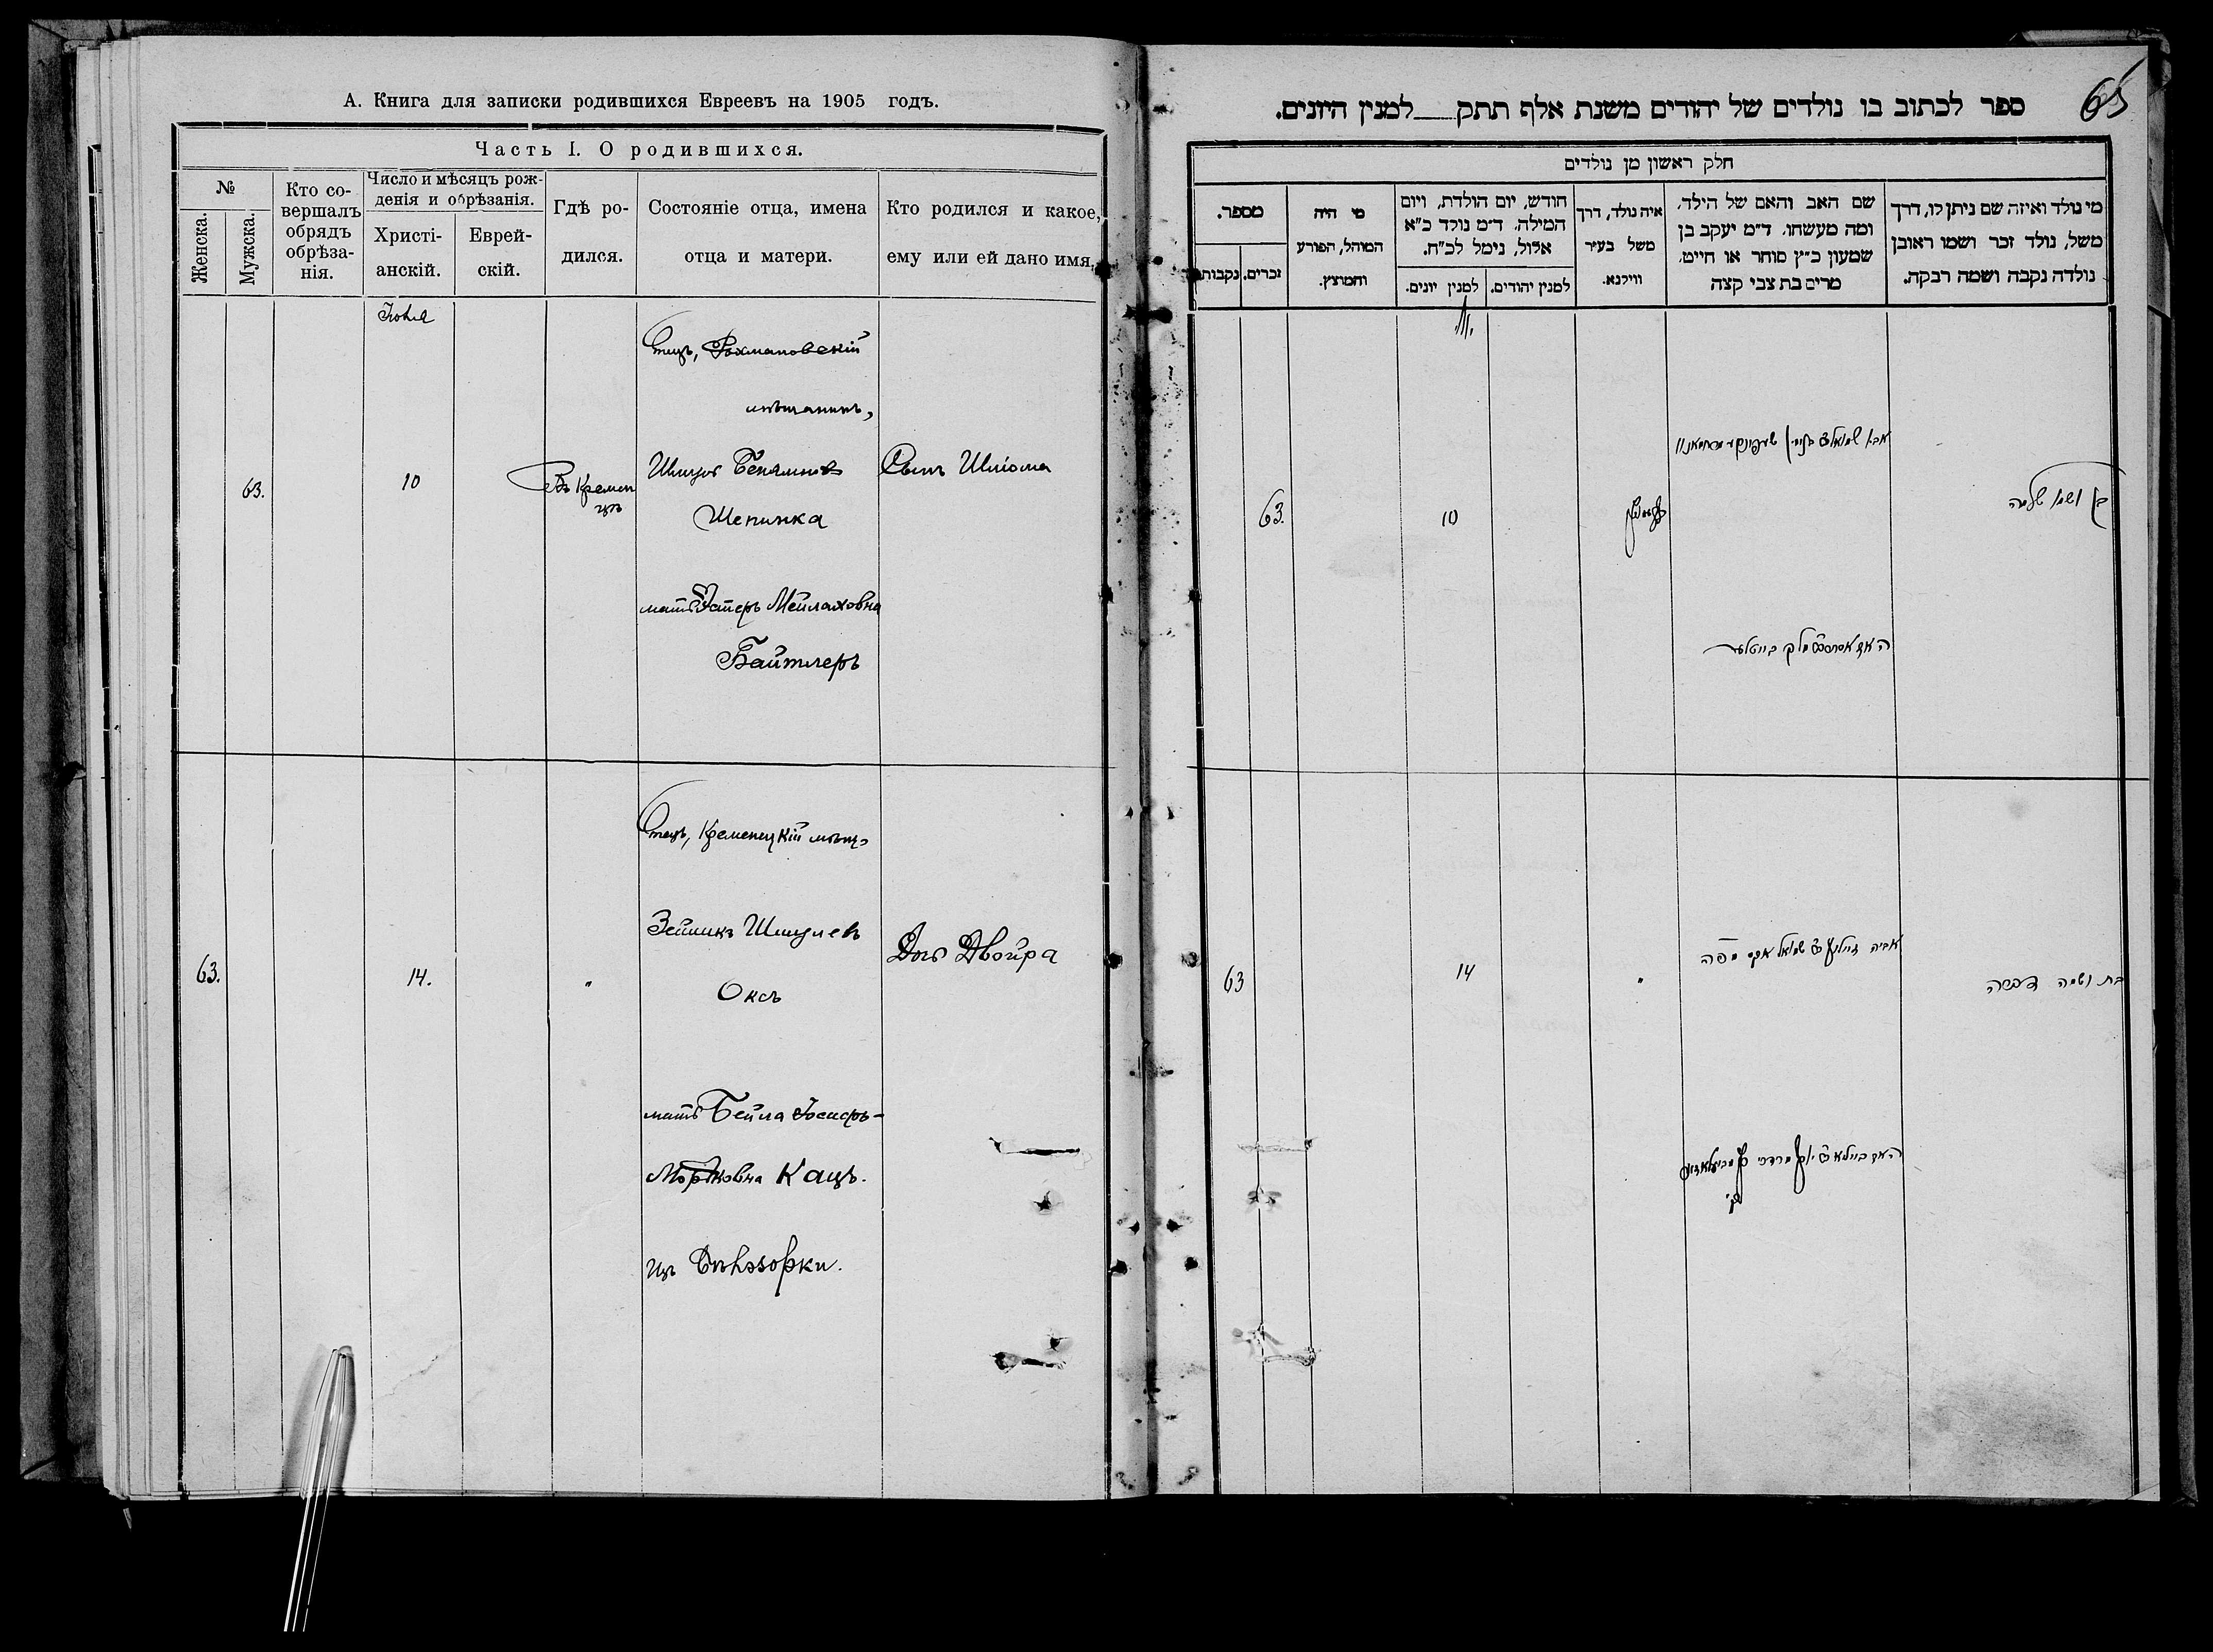 А. Книга для записки родившихся Евреевъ на 1905 годъ.
Часть I. О родившихся.
№
Женска.
Мужска.
Кто со-
вершалъ
обрядъ
обрѣза-
нія.
Число и мѣсяцъ рож-
денія и обрѣзанія.
Христі-
анскій.
Еврей-
скій.
Гдѣ ро-
дился.
Состояніе отца, имена
отца и матери.
Кто родился и какое,
ему или ей дано имя.
Іюня
63.
10
Въ Кремен
цѣ
Отецъ, Рохмановскій
мѣщанинъ,
Шмуль Беньяминовъ
Шепинка
мать Эстеръ Мейлаховна
Байтлеръ
Сынъ Шлiома
63.
14.
"
Отецъ, Кременецкій мѣщ.
Зейликъ Шмулев
Оксъ
мать Бейла Іосифъ-
Мордковна Кацъ.
изъ Бѣлозорки.
Дочь Двойра
ספר לכתוב בו נולדים של יהודים משנת אלף תתק למנין היונים.
65
חלק ראשון מן נולדים
מי נולד ואיזה שם ניתן לו, דרך
משל, נולד זכר ושמו ראובן
נולדה נקבה ושמה רבקה.
שם האב והאם של הילד,
ומה מעשהו. ד״מ יעקב בן
שמעון כ״ץ סוחר או חייט,
מרים בת צבי קצה
איה נולד, דרך
משל בעיר
ווילנא.
חודש, יום הולדת, ויום
המילה. ד״מ נולד כ״א
אלול, נימל לכ״ח.
למנין יהודים.
למנין יונים.
מי היה
המוהל, הפורע
והמוצץ.
מספר.
זכרים.
נקבות
בן ושמו שלמה
10
63.
בת ושמה דבורה
"
14
63